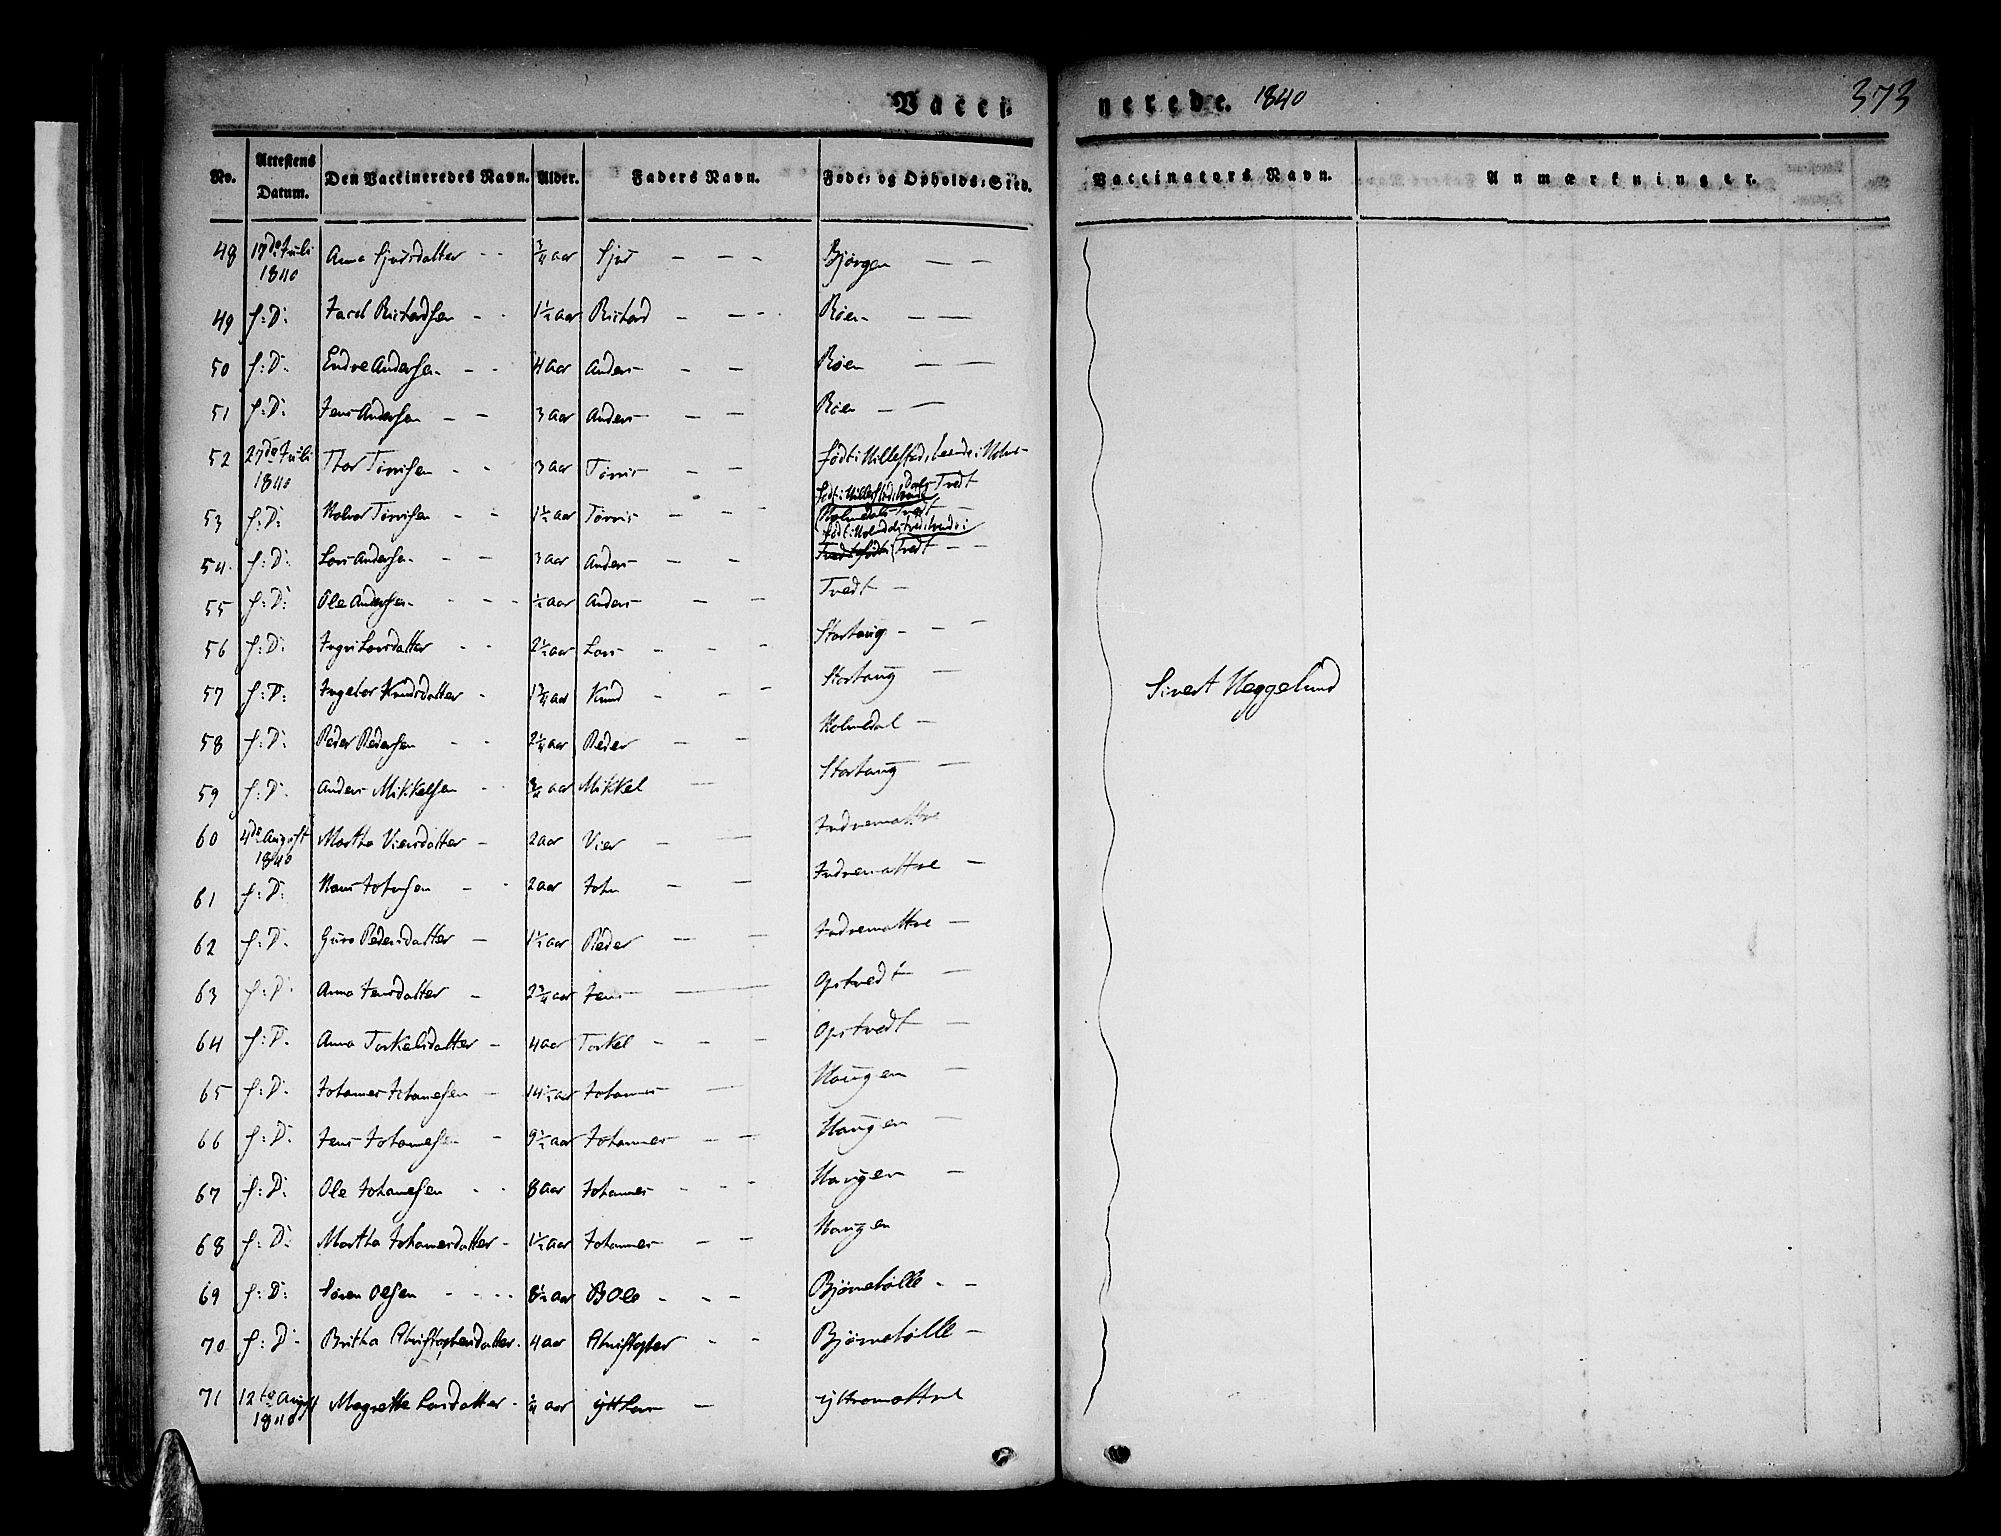 Vacci- nerede. 1840 373
No. Attestens Datum. Den Vaccineredes Navn. Alder. Faders Navn. Føde- og Opholds-Sted. Vaccinators Navn. Anmærkninger.
48 17de Juli 1840 Anna Sjursdatter - - 3/4 aar Sjur - - - Bjørgen - -
49 f: D: Richardsen - - 1 1/2 aar Richard - - - Røen - -
50 f: D: Endre Andersen - - 4 aar Anders - - Røen - -
51 f: D: Jens Andersen - - 3 aar Anders - - Røen - -
52 27de Juli 1840 Thor - - 3 aar - - født i Millested, boende i Holme-
dals Tvedt
53 f: D: Halvor - - 1 1/2 aar - - - født i Millested, boende
Holmedals Tvedt -
født i Holmedal
54 f: D: Lars Andersen - - 3 aar Anders - - Tvedt - -
55 f: D: Ole Andersen - - - 1/2 aar Anders - - Tvedt -
56 f: D: Ingri Larsdatter - - 2 1/2 aar Lars - - - Storhaug - - -
57 f: D: Ingebor Knudsdatter - 1 3/4 aar Knud - - - Storhaug -
58 f: D: Peder Pedersen - - 2 1/4 aar Peder - - Holmedal -
59 f: D: Anders Mikkelsen - - 3/4 aar Mikkel - Storhaug -
60 4de August 1840 Martha Viersdatter - 2 aar Vier - - Indremattre
61 f: D: Hans Johnsen - - 2 aar John - - Indremattre -
62 f: D: Guro Pedersdatter - 1 1/2 aar Peder - - Indremattre -
63 f: D: Anna Jensdatter - 2 3/4 aar Jens - - Opstvedt -
64 f: D: Anna Torkelsdatter - 4 aar Torkel - - - Opstvedt -
65 f: D: Johannes Johanesen - 14 1/2 aar Johannes - Haugen -
66 f: D: Jens Johannesen - 9 1/2 aar Johannes - - Haugen -
67 f: D: Ole Johanesen - - 8 aar Johannes - - - Haugen -
68 f: D: Martha Johanesdatter - 1 1/2 aar Johannes - - Haugen
69 f: D: Søren Olsen - - - - 8 1/2 aar Ole - - - Bjørnebølle - -
70 f: D: Britha Christophersdatter. 4 aar Christopher - - Bjørnebølle -
71 12te August 1840 Magrette Larsdatter - 1/4 aar Lars - Yttremattre
Sivert Heggelund